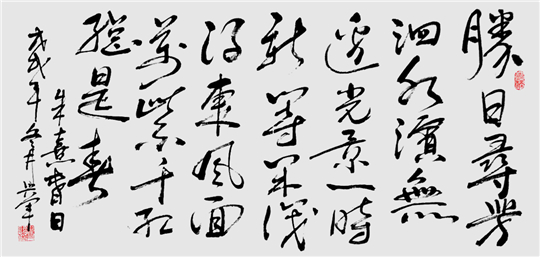 勝日尋芳
泗水濱無
邊光景一時
新等閑識
得東風面
萬紫千紅
總是春
朱熹春日
戊戌年